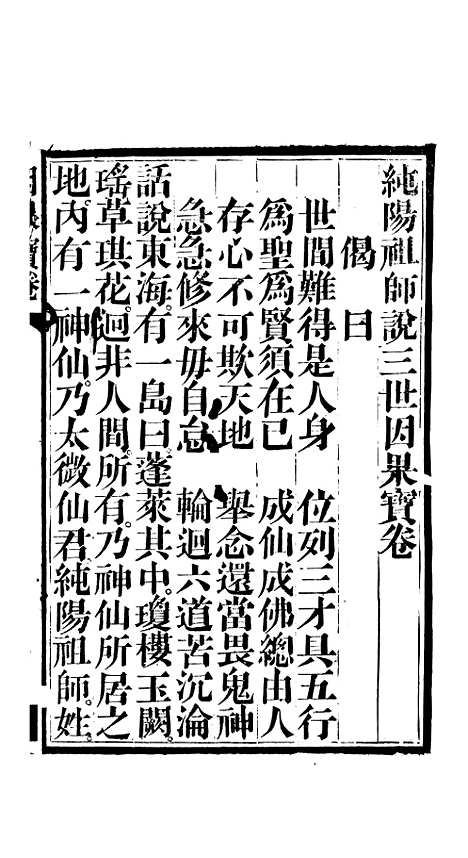 純陽祖師說三世因果寶卷
偈曰
世間難得是人身　位列三才具五行
爲聖爲賢須在己　成仙成佛總由人
存心不可欺天地　舉念還當畏鬼神
急急修來毋自怠　輪迴六道苦沉淪
話說東海。有一島曰。蓬萊其中。瓊樓玉闕。
瑤草琪花。迥非人間。所有。乃神仙所居之
地。內有一神仙。乃太微仙君。純陽祖師。姓。
寶卷